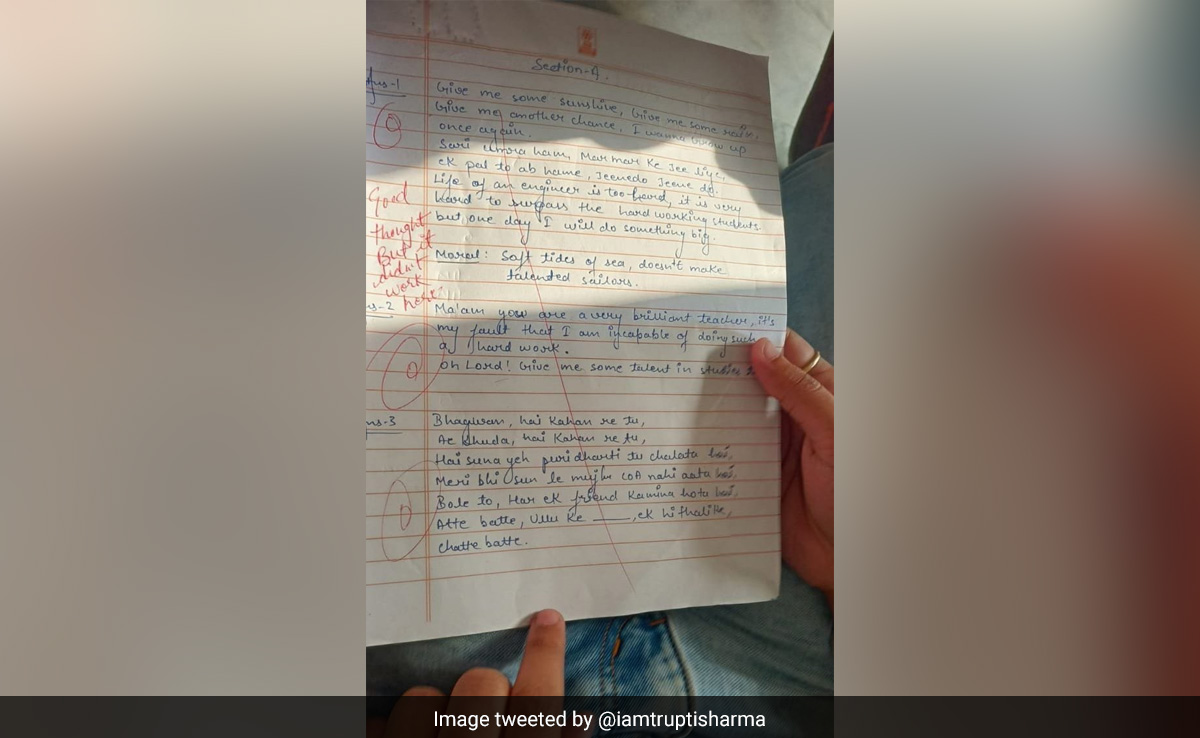 Section-A.
Ans-1
Give me some sunshine, Give me some rain,
Give me another chance, I wanna Grow up
once again.
Sari umra ham, Mar mar Ke Jee liye,
ek pal to ab hame, Jeenedo Jeene do.
Life of an engineer is too hard, it is very
hard to surpass the hard working students
but one day I will do something big.
Moral: Soft tides of sea, doesn't make
talented sailors.
0
Good
thought
But it
didn't
work
here.
s-2
Ma'am you are a very brilliant teacher, it's
my fault that I am incapable of doing such
a hard work.
Oh Lord! Give me some talent in studies
0
ns-3
Bhagwan, hai Kahan re tu,
Ae Khuda, hai Kahan re tu,
Hai suna yeh puri dharti tu chalata hai,
Meri bhi sun le mujhe COA nahi aata hai,
Bole to, Har ek friend Kamina hota hai,
Atte batte, Ullu Ke ___, ek hi thali Ke,
chatte batte.
0
Image tweeted by @iamtruptisharma